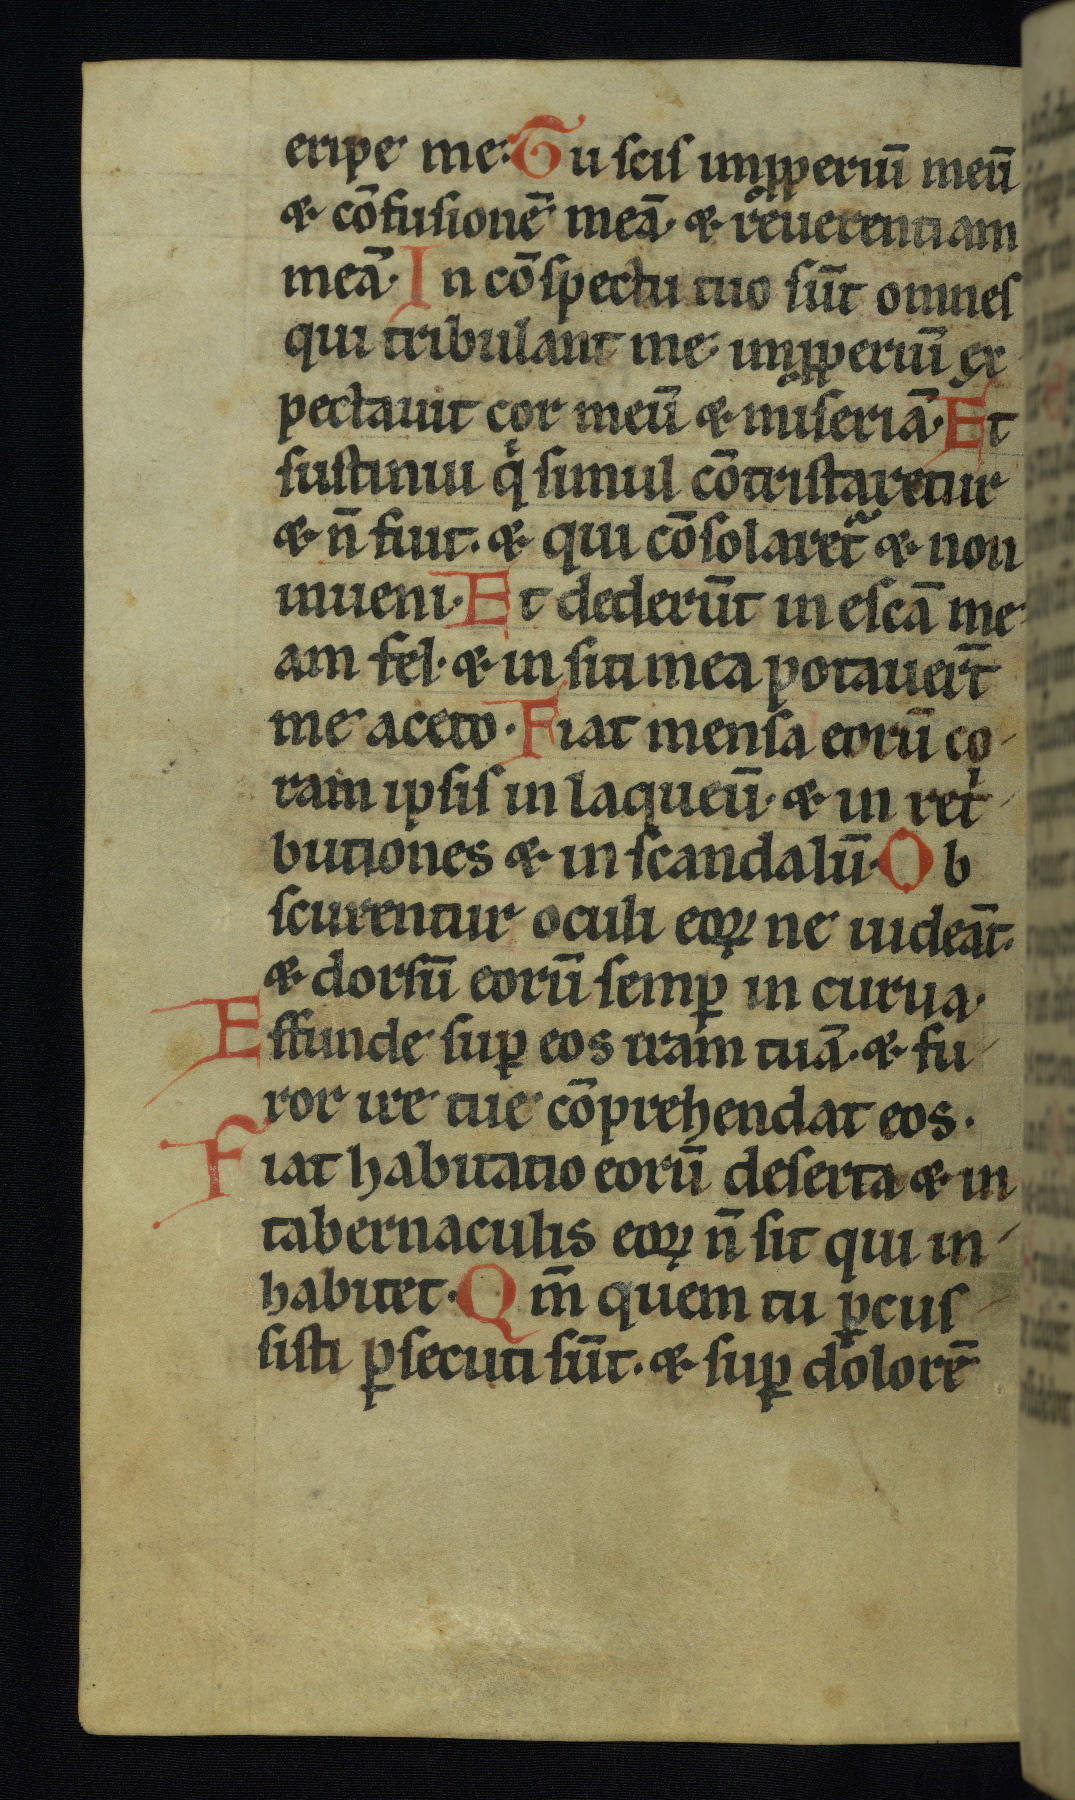 eripe me: Tu scis imꝓperiū meū
& cōfusionē meā· & reuerentiam
meā· In cōspectu tuo sūt omnes
qui tribulant me· imꝓperiū ex
pectauit cor meū & miseriā· Et
sustinui qͥ simul cōtristaretur
& n̄ fuit· & qui cōsolaret᷑ & non
inueni· Et dederūt in escā me
am fel· & in siti mea potauer̄t
me aceto· Fiat mensa eorū co
ram ipsis in laqueū· & in retͥ
butiones & in scandalū· Ob
scurentur oculi eoꝝ ne uideāt·
& dorsū eorū semꝑ in curua·
Effunde suꝑ eos iram tuā· & fu
ror ire tue cōprehendat eos·
Fiat habitatio eorū deserta & in
tabernaculis eoꝝ n̄ sit qui in
habitet· Qm̄ quem tu ꝑcus
sisti ꝑsecuti sūt· & suꝑ dolorē